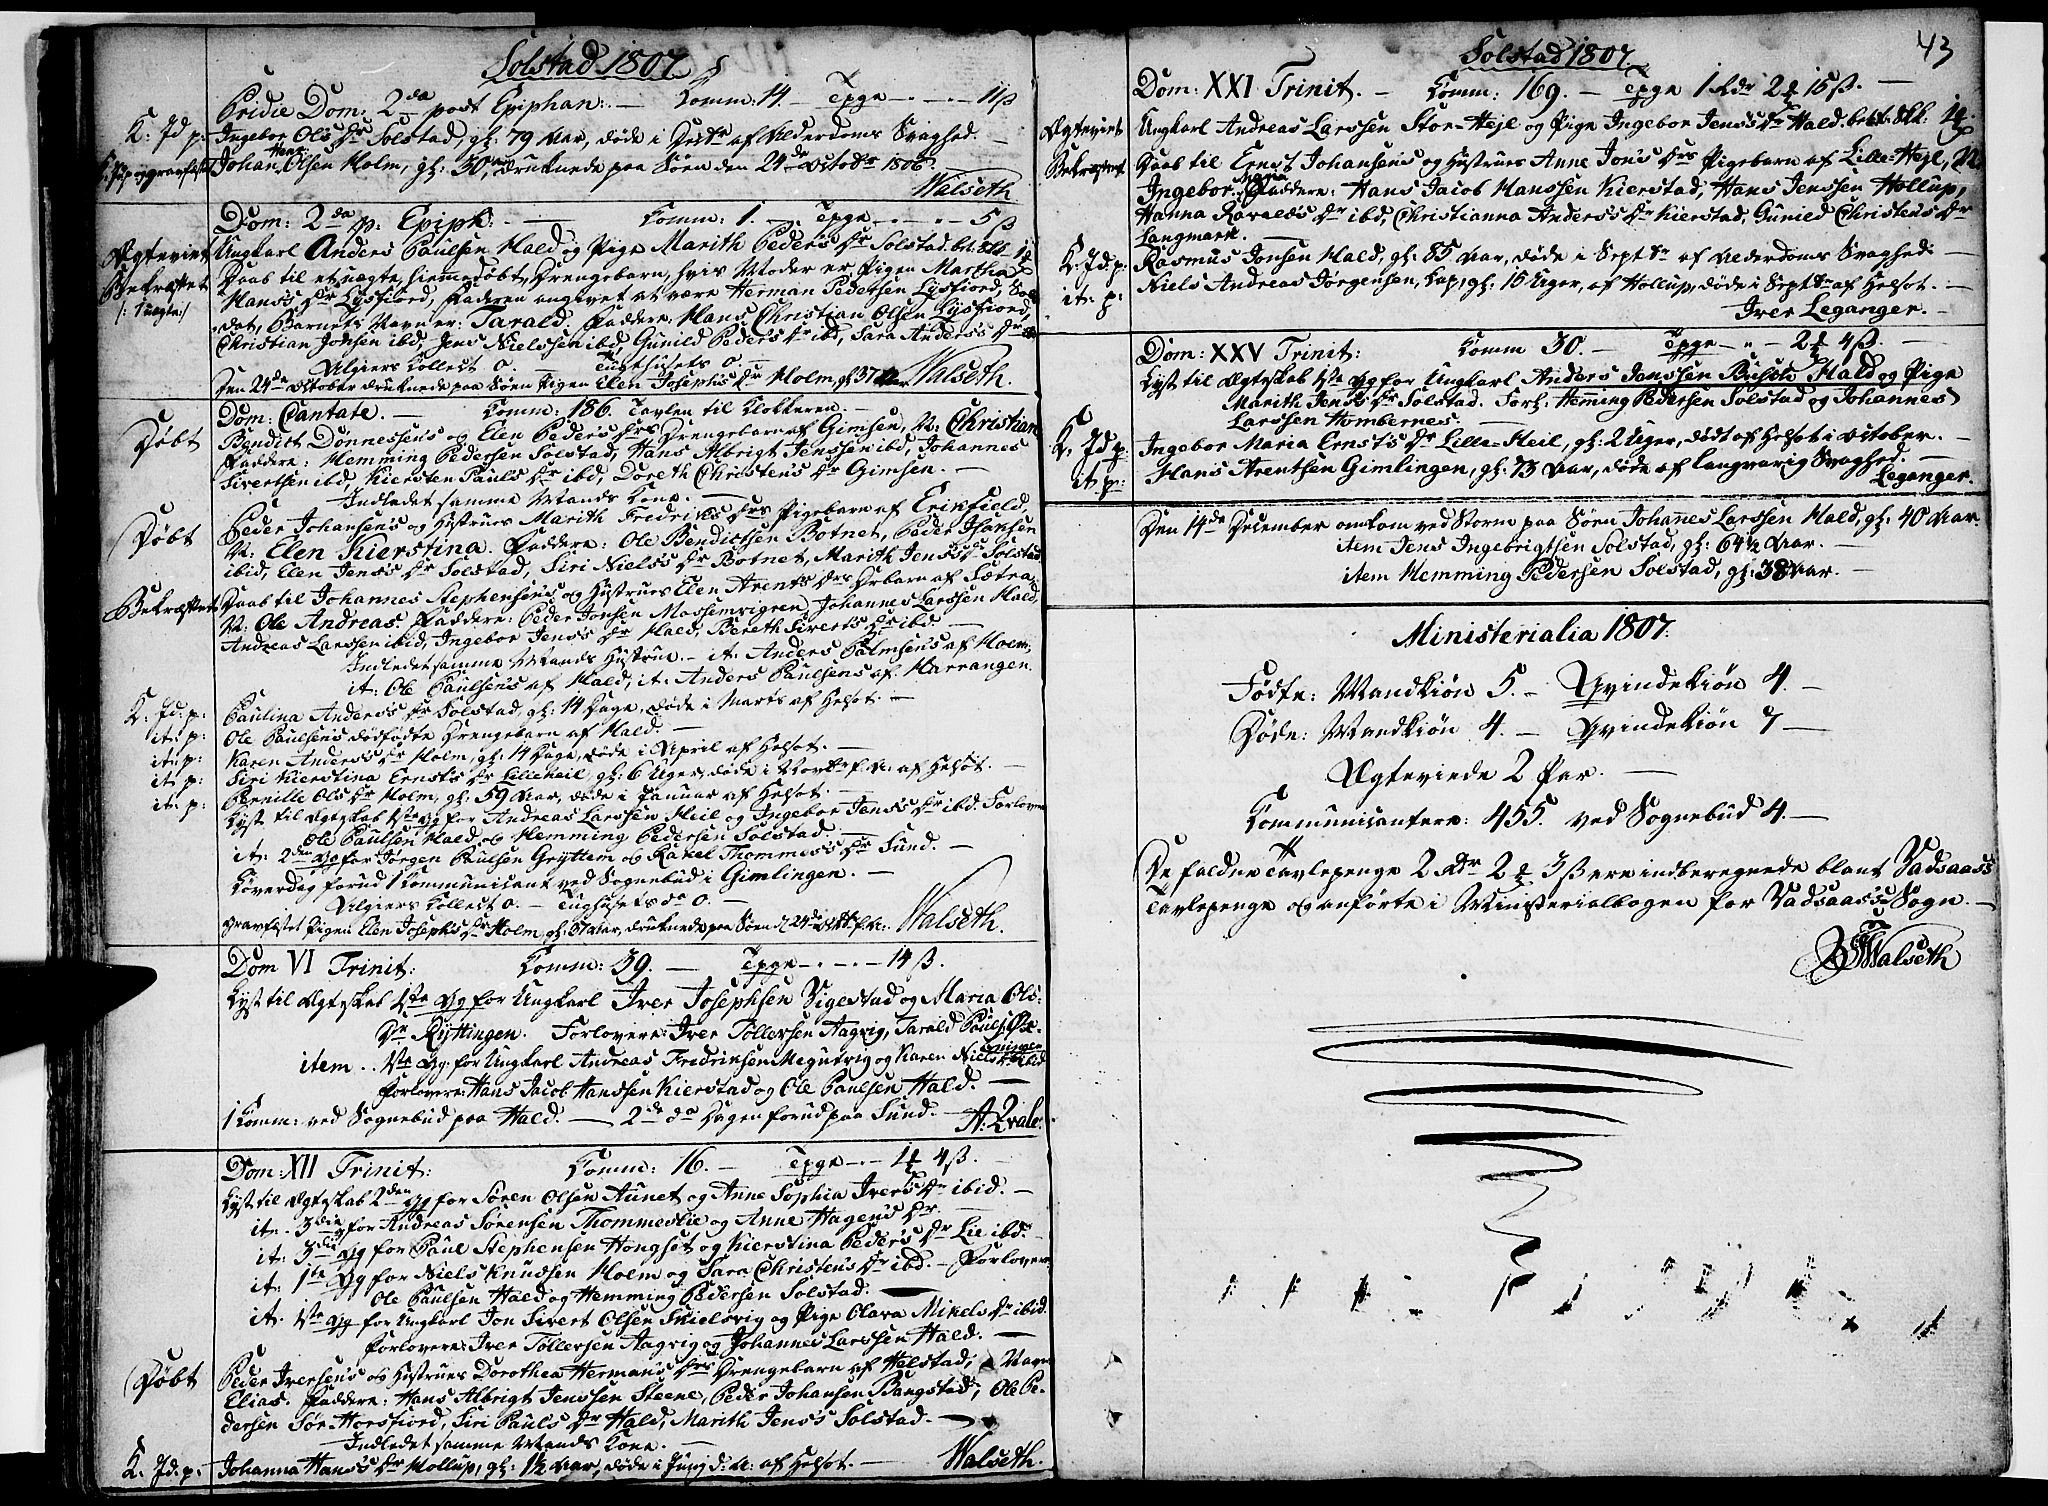 Solstad 1807.
Pridie Dom: 2da post Epiphan: — Komm: 14. — Tpge - - - 11ß
K: Jd p: Ingebor Ols Dr Solstad, gl: 79 Aar, døde i af Alderdoms Svaghed. —
Johan Hans Olsen Holm, gl: 30 Aar, druknede paa Søen den 24de Octobr 1806.
Walseth
Dom: 2da p: Epiph: — Komm: 1. — Tpge - - - 5ß
Ægteviet Ungkarl Anders Paulsen Hald og Pige Marith Peders Dr Solstad. bet. Skl
Bekræftet Daab til et uægte, hiemmedøbt, Drengebarn, hvis Moder er Pigen Martha
/: Uægte:/ Hans's Dr Lysfiord, Faderen angivet at være Herman Pedersen Lysfiord, Sol
dat, Barnets Navn er: Tarald. Faddere: Hans Christian Olsen Lysfiord,
Christian Jonsen ibd, Jens Nielssen ibd, Gunild Peders Dr ibd, Sara Anders's Dr ibd
Algiers Collect 0. — Tugthusets 0. —
Den 24de October druknede paa Søen Pigen Elen Joseph's Dr Holm, gl: 37 Aar Walseth.
Dom: Cantate. — Komm: 186. Tavlen til Klokkeren. —
Døbt Bendict Dønnessen's og Elen Peder's Drs Drengebarn af Gimsen, N: Christian
Faddere: Hemming Pedersen Solstad, Hans Albrigt Jenssen ibd, Johannes
Sivertsen ibd, Kiersten Pauls Dr ibd, Doreth Christens Dr Gimsen. —
Indledet samme Mands Kone. —
Døbt Peder Johansens og Hustrues Marith Fredriks Drs Pigebarn af Erikfield,
N: Elen Kierstina. Faddere: Ole Bendictsen Botnet, Peder Johansen
ibid, Elen Jens's Dr Solstad, Siri Niels's Dr Botnet, Marith Jens's Dr Solstad
Bekræftet Daab til Johannes Stephensens og Hustrues Elen Arents Drs Drbarn af Sætra,
N: Ole Andreas. Faddere: Peder Jonsen Mosemvigren, Johannes Larssen Hald,
Andreas Larssen ibid, Ingebor Jens's Dr Hald, Bereth Siverts Dr ibd —
Indledet samme Mands Hustrue. — it: Anders Palmsens af Holm,
it: Ole Paulsens af Hald, it: Anders Paulsens af Harrangen
K: Jd: p: Paulina Anders's Dr Solstad, gl: 14 Dage, døde i Marts af Helsot. —
it: p: Ole Paulsens dødfødte Drengebarn af Hald. —
it: p: Karen Anders's Dr Holm, gl: 14 Dage, døde i April af Helsot. —
it: p: Siri Kierstina Ernst's Dr Lilleheil, gl: 6 Uger, døde i f. A: af Helsot. —
it: p: Pernille Ols Dr Holm, gl: 59 Aar, døde i Januar af Helsot. —
Lyst til Ægteskab 1ste Gg for Andreas Larssen Heil og Ingebor Jens's Dr ibd. Forlovere
Ole Paulsen Hald og Hemming Pedersen Solstad. —
it: 2den Gg for Jørgen Paulsen Gryttem og Rakel Thommes's Dr Sund. —
Løverdag forud 1 Kommunicant ved Sognebud i Gimlingen. —
Algiers Collect 0. — Tughusets do 0. —
Gravfæstet Pigen Elen Josephs Dr Holm, gl: 37 Aar, druknede paa Søen d 24de Octbr f. A:. Walseth.
Dom VI Trinit: Komm: 39. — Tpge - - - 14ß.
Lyst til Ægteskab 1ste Gg for Ungkarl Iver Josephsen Vigestad og Maria Ols-
Dr Ryttingen. Forlovere Iver Tollersen Aagvig, Tarald Pauls. Øx-
ningen
item .. 1ste Gg. for Ungkarl Andreas Fredriksen Megutvig og Karen Niels Dr ibid
Forlovere Hans Jacob Hanssen Kierstad og Ole Paulsen Hald. —
1 Komm: ved Sognebud paa Hald. — 2de do Dagen forud paa Sund. — A: Qvale.
Dom: XII Trinit: Komm: 16. — Tpge - - 1 4ß. —
Lyst til Ægteskab 2den Gg for Søren Olsen Aunet og Anne Sophia Ivers Dr ibid. —
it. 3die for Andreas Sørensen Thommeslie og Anne Hagens Dr. —
it: 3die Gg for Paul Stephensen Hongset og Kierstina Peders's Dr Lie ibd. —
it: 1ste Gg for Niels Knudsen Holm og Sara Christens Dr ibd. — Forlovere
Ole Paulsen Hald og Hemming Pedersen Solstad. —
it. 1ste Gg for Ungkarl Jon Sivert Olsen Skielsvig og Pige Olava Mikels Dr ibid.
Forlovere: Iver Tollersen Aagvig og Johannes Larssen Hald. —
Døbt Peder Iversens og Hustrues Dorothea Herman's Drs Drengebarn af Helstad, Navn
Elias. Faddere: Hans Albrigt Jenssen Steene, Peder Johansen Bangstad, Ole Pe-
dersen Sør-Horsfiord, Siri Pauls Dr Hald, Marith Jens's Solstad. —
Indledet samme Mands Kone. —
K. Jd: p: Johanna Hans's Dr Hollup, gl: 1½ Aar, døde i Juny d: A: af Helsot. — Walseth.
43
Solstad 1807.
Dom: XXI Trinit. — Komm: 169. — Tpge 1 Rdr 2 15ß. —
Ægteviet Ungkarl Andreas Larssen Stor-Hejl og Pige Ingebor Jens's Dr Hald. bet. Skl:
Bekræftet Daab til Ernst Johansens og Hustrues Anne Jons's Drs Pigebarn af Lille-Hejl, N.
Ingebor Maria Faddere: Hans Jacob Hanssen Kierstad, Hans Jenssen Hollup,
Hanna Ravalds Dr ibd, Christianna Anders's Dr Kierstad, Gunild Christens Dr
Langmark. —
K: Jd: p: Rasmus Jonsen Hald, gl: 85 Aar, døde i Septbr af Alderdoms Svaghed: —
it: p: Niels Andreas Jørgensen, Lap, gl: 16 Uger, af Hollup, døde i Septbr af Helsot. —
Iver Leganger. —
Dom: XXV Trinit: Komm 30. — Tpge - " - 2 4ß. —
Lyst til Ægteskab 1ste Gg for Ungkarl Anders Jonssen Hald og Pige
Marith Jens's Dr Solstad. Forl: Hemming Pedersen Solstad og Johannes
Larssen Hombernes. —
K: Jd p. Ingebor Maria Ernst's Dr Lille-Heil, gl: 2 Uger, død af Helsot i October. —
it p: Hans Arentsen Gimlingen, gl: 73 Aar, døde af langvarig Svaghed. —
Leganger.
Den 14de December omkom ved Storm paa Søen Johannes Larssen Hald, gl: 40 Aar.
item Jens Ingebrigtsen Solstad, gl: 64½ Aar. —
item Hemming Pedersen Solstad, gl: 38 Aar. —
Ministerialia 1807.
Fødte: Mandkiøn 5. — Qvindekiøn 4. —
Døde: Mandkiøn 4. — Qvindekiøn 7 —
Ægteviede 2 Par. —
Kommunicantere: 455. ved Sognebud 4. —
De faldne Tavlepenge 2 Rdr 2 3ß ere indberegnede blant Vadsaass
Tavlepenge og anførte i Ministerialbogen for Vadsaass Sogn. —
Walseth